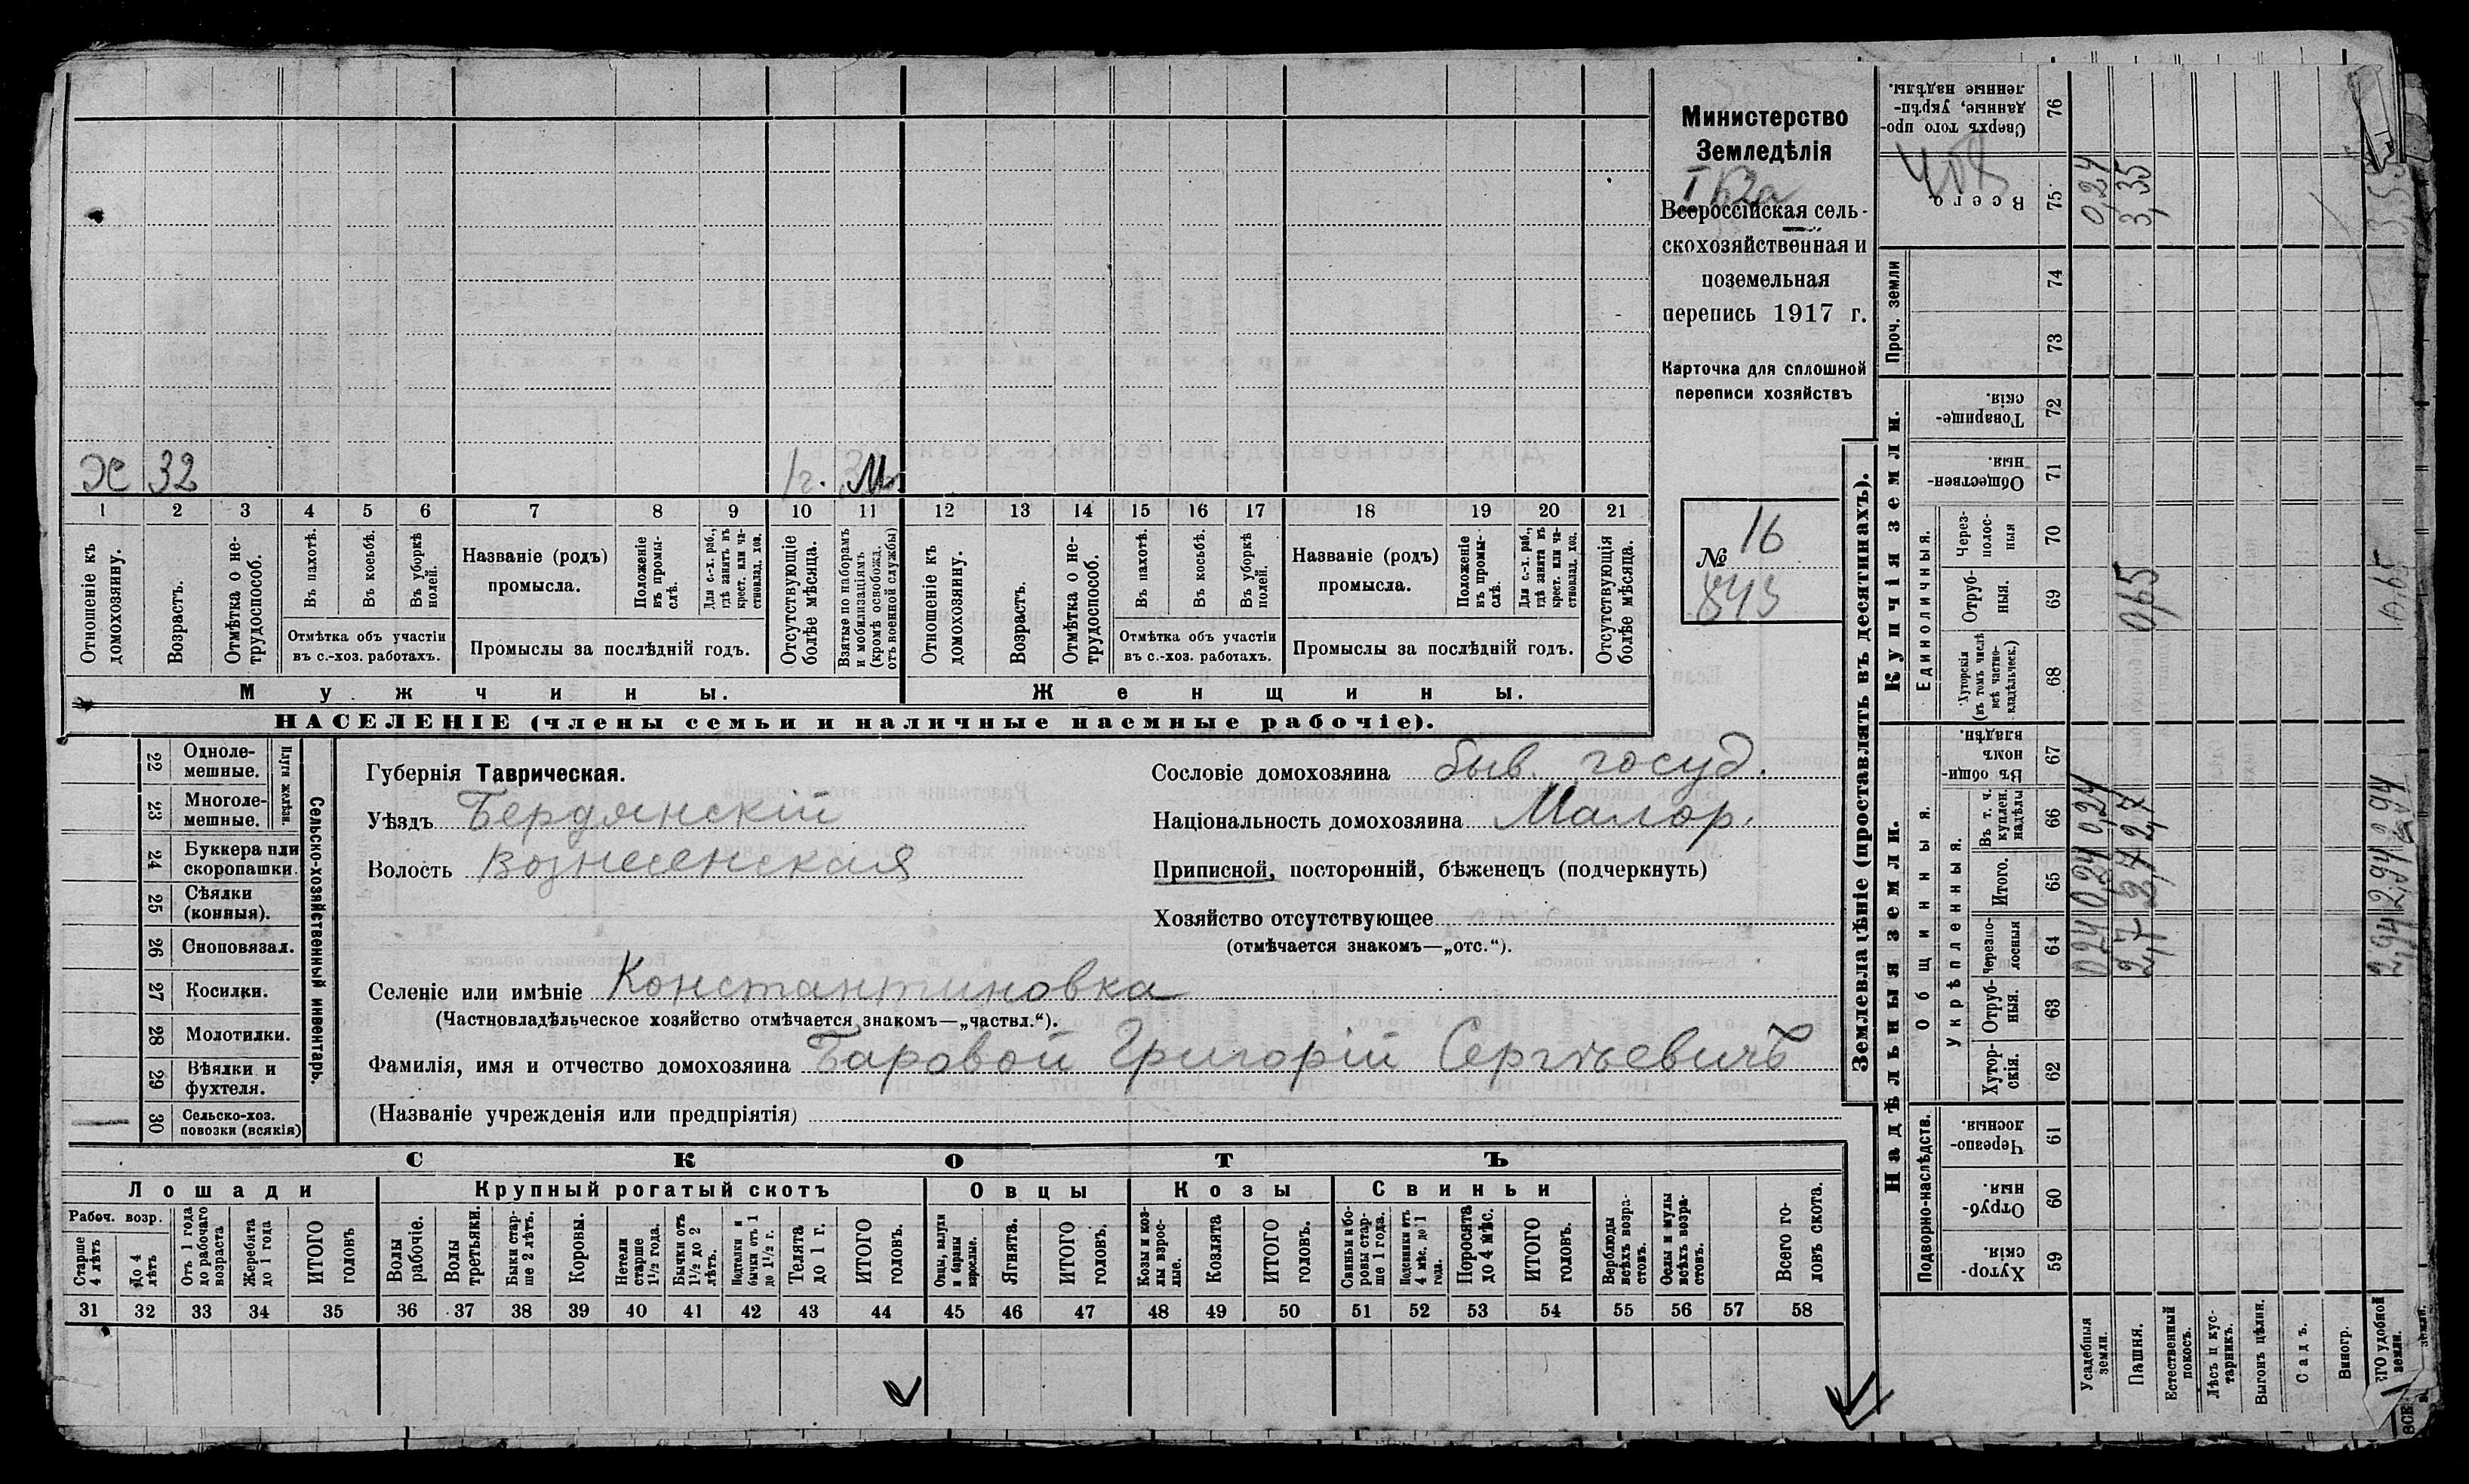 Министерство
Земледѣлія
Всероссійская сель-
скохозяйственная и
поземельная
перепись 1917 г.
Карточка для сплошной
переписи хозяйствъ
№ 16
843
Х 32 1 г. М
1 2 3 4 5 6 7 8 9 10 11 12 13 14 15 16 17 18 19 20 21
Отношеніе къ домохозяину.
Возрастъ.
Отмѣтка о не-трудоспособ.
Въ пахотѣ.
Въ косьбѣ.
Въ уборкѣ полей.
Отмѣтка объ участіи
въ с.-хоз. работахъ.
Названіе (родъ)
промысла.
Положеніе въ промы-слѣ.
Для с.-х. раб., гдѣ занятъ въ крест. или ча-стновлад. хоз.
Промыслы за послѣдній годъ.
Отсутствующіе болѣе мѣсяца.
Взятые по наборамъ и мобилизаціямъ (кромѣ освобожд. отъ военной службы)
Отношеніе къ домохозяину.
Возрастъ.
Отмѣтка о не-трудоспособ.
Въ пахотѣ.
Въ косьбѣ.
Въ уборкѣ полей.
Отмѣтка объ участіи
въ с.-хоз. работахъ.
Названіе (родъ)
промысла.
Положеніе въ промы-слѣ.
Для с.-х. раб., гдѣ занята въ крест. или ча-стновлад. хоз.
Промыслы за послѣдній годъ.
Отсутствующія болѣе мѣсяца.
Мужчины.
Женщины.
НАСЕЛЕНІЕ (члены семьи и наличные наемные рабочіе).
22 Одноле-мешные.
23 Многоле-мешные.
Плуги желѣзн.
24 Буккера или скоропашки.
25 Сѣялки (конныя).
26 Сноповязал.
27 Косилки.
28 Молотилки.
29 Вѣялки и фухтеля.
30 Сельско-хоз. повозки (всякія)
Сельско-хозяйственный инвентарь.
Губернія Таврическая.
Уѣздъ Бердянскій
Волость Вознесенская
Сословіе домохозяина быв. госуд.
Національность домохозяина Малор.
Приписной, посторонній, бѣженецъ (подчеркнуть)
Хозяйство отсутствующее
(отмѣчается знакомъ—„отс.“).
Селеніе или имѣніе Константиновка
(Частновладѣльческое хозяйство отмѣчается знакомъ—„частвл.“).
Фамилія, имя и отчество домохозяина Баровой Григорій Сергѣевичъ
(Названіе учрежденія или предпріятія)
СКОТЪ
Лошади
Крупный рогатый скотъ
Овцы
Козы
Свиньи
Рабоч. возр.
Старше 4 лѣтъ
До 4 лѣтъ
Отъ 1 года до рабочаго возраста
Жеребята до 1 года
ИТОГО головъ
Волы рабочіе.
Волы третьяки.
Быки стар-ше 2 лѣтъ.
Коровы.
Нетели старше 1½ года.
Бычки отъ 1½ до 2 лѣтъ.
Подтелки и бычки отъ 1 до 1½ г.
Телята до 1 г.
ИТОГО головъ.
Овцы, валухи и бараны взрослые.
Ягнята.
ИТОГО головъ.
Козы и коз-лы взрос-лые.
Козлята
ИТОГО головъ.
Свиньи и бо-ровы стар-ше 1 года.
Подсвинки отъ 4 мѣс. до 1 года.
Поросята до 4 мѣс.
ИТОГО головъ.
Верблюды всѣхъ возра-стовъ.
Ослы и мулы всѣхъ возра-стовъ.
Всего го-ловъ скота.
31 32 33 34 35 36 37 38 39 40 41 42 43 44 45 46 47 48 49 50 51 52 53 54 55 56 57 58
Землевладѣніе (проставлять въ десятинахъ).
Надѣльныя земли.
Купчія земли.
Проч. земли
Подворно-наслѣдств.
Общинныя.
Укрѣпленныя.
Единоличныя.
Хутор-скія. 59
Отруб-ныя. 60
Черезпо-лосныя. 61
Хутор-скія. 62
Отруб-ныя. 63
Черезпо-лосныя 64
Итого. 65
Въ т. ч. куплен. надѣлы 66
Въ общин-номъ владѣн. 67
Хуторскія (въ томъ числѣ всѣ частно-владѣльческ.) 68
Отруб-ныя. 69
Через-полос-ныя 70
Обществен-ныя. 71
Товарище-скія. 72
73
74
Всего 75
Сверхъ того про-данные, укрѣп-ленные надѣлы. 76
Усадебныя земли. 0,24 0,24 0,24 0,24
Пашня. 2,7 2,7 2,7 0,65 3,35
Естественный покосъ.
Лѣсъ и кус-тарникъ.
Выгонъ цѣлин.
Садъ.
Виногр.
ЕГО удобной земли. 2,94 2,94 2,94 0,65